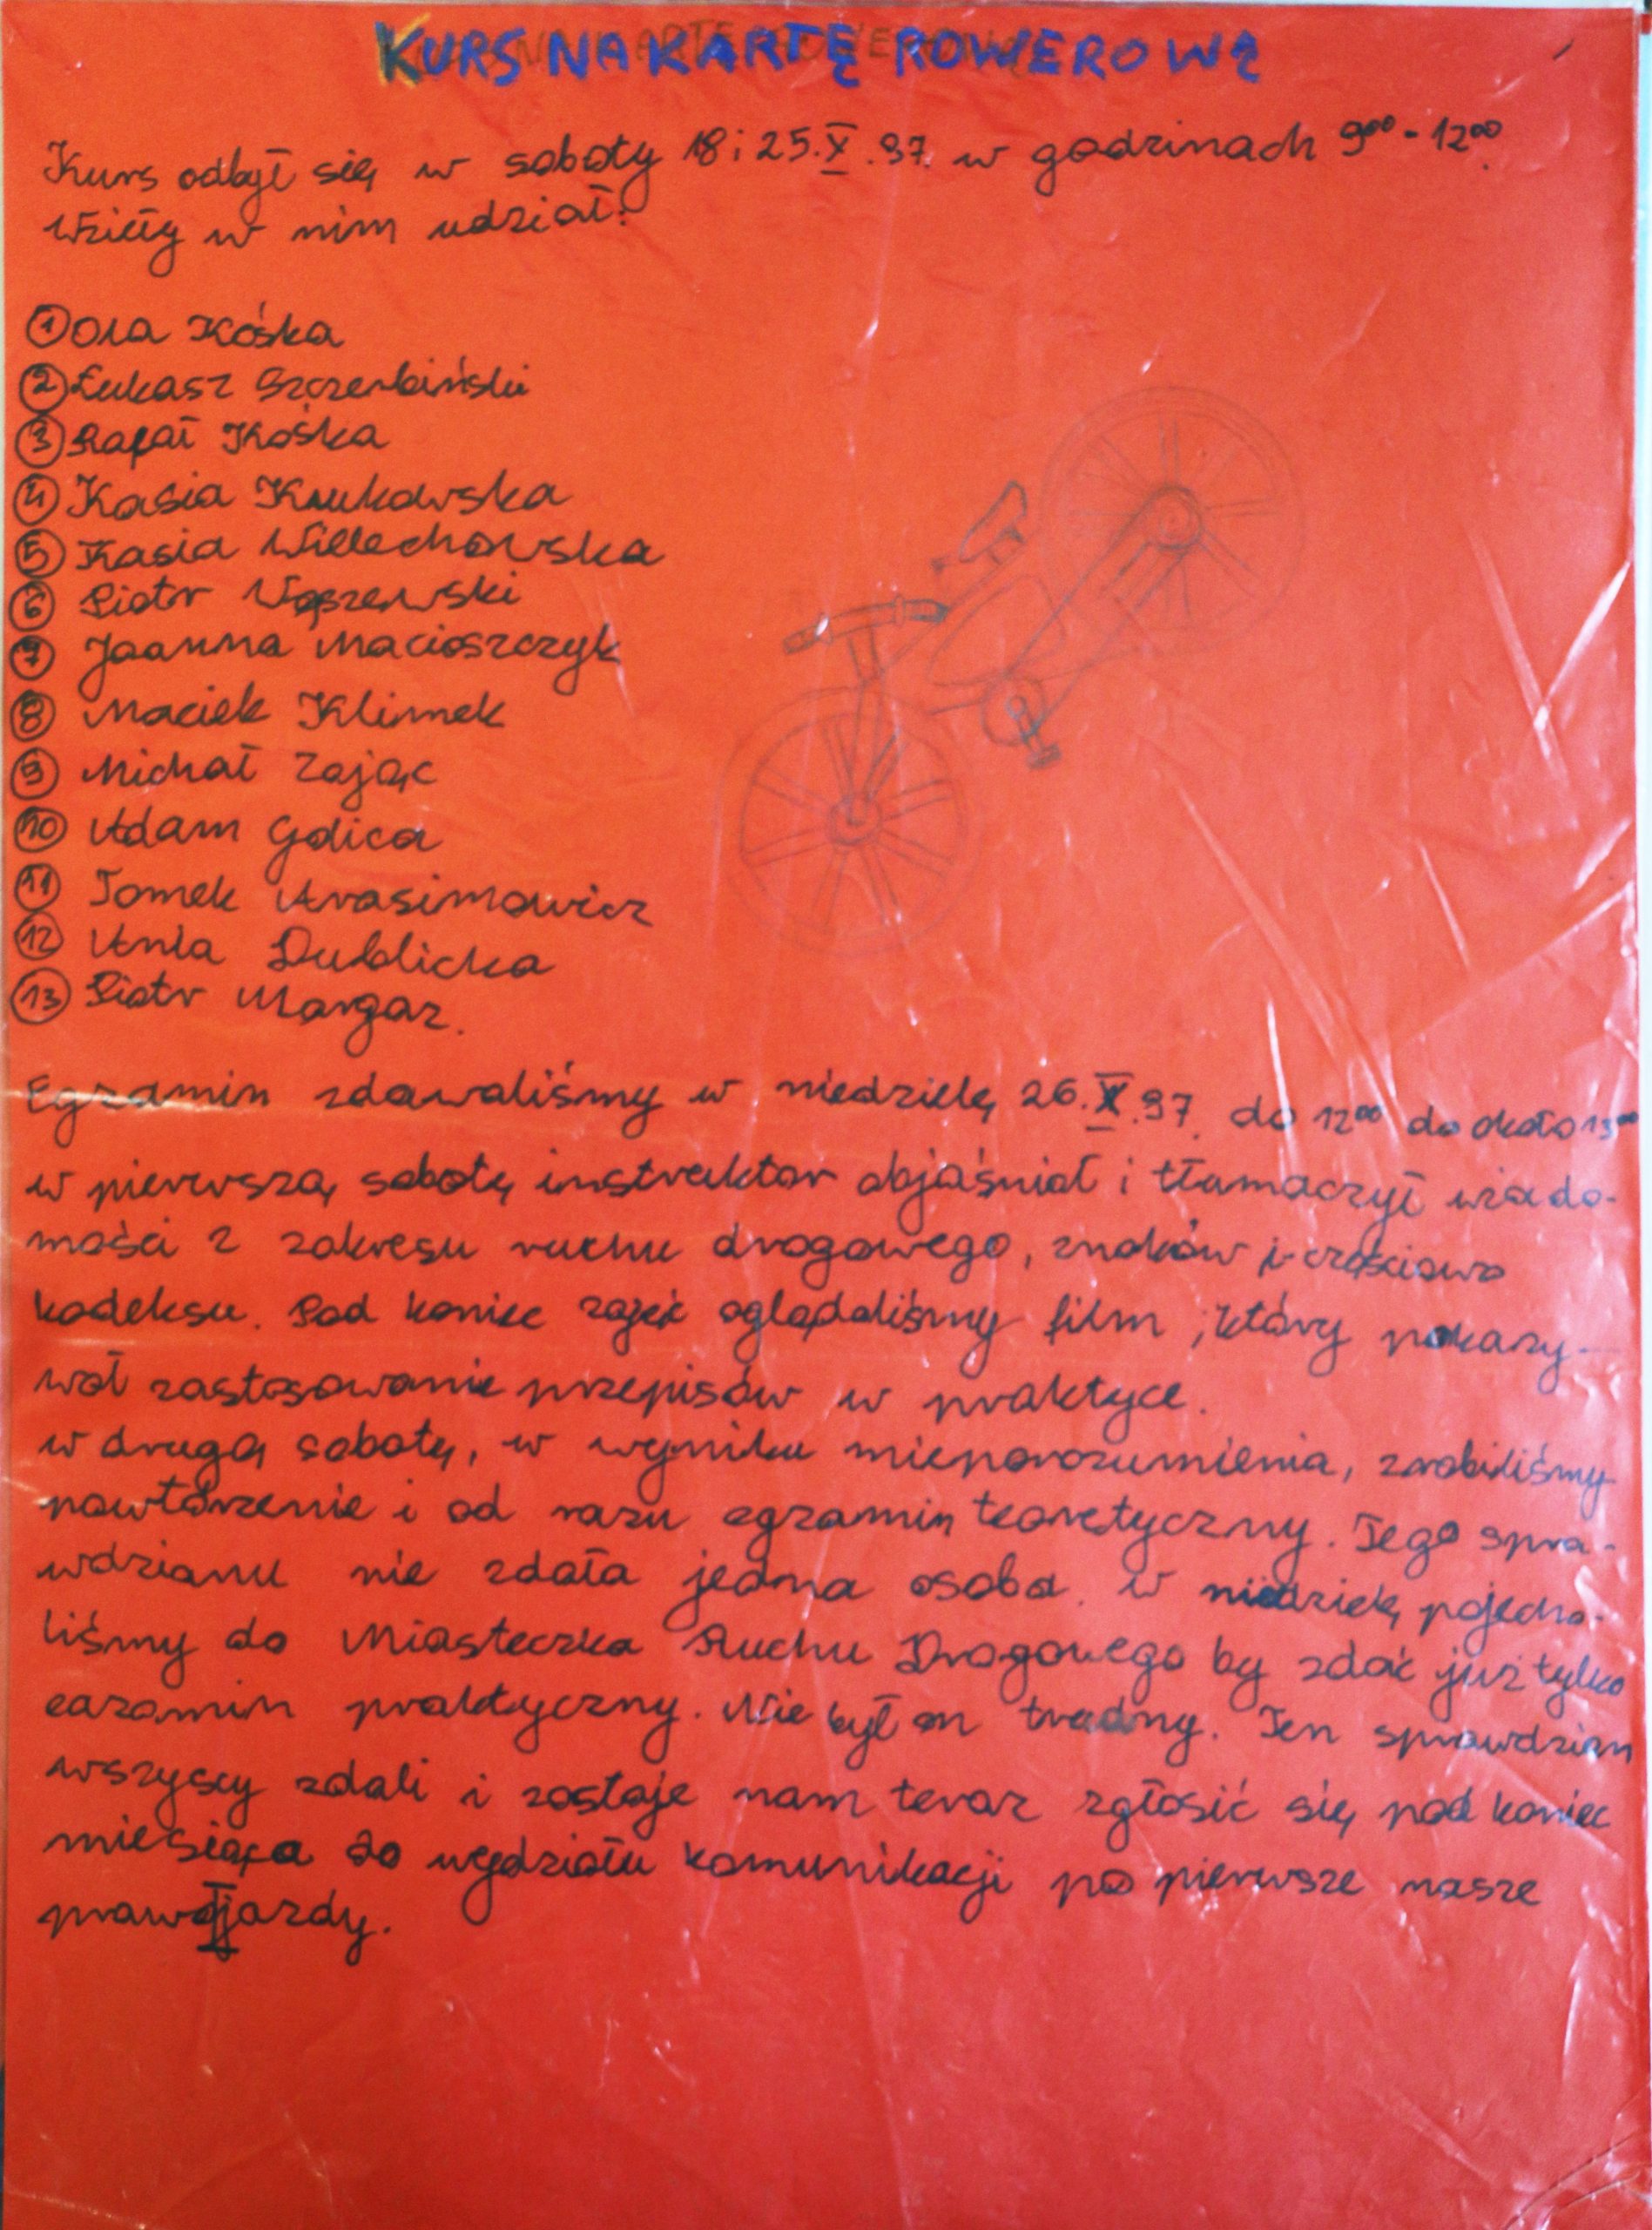 KURS NA KARTĘ ROWEROWĄ
Kurs odbył się w soboty 18 i 25.X.97. w godzinach 9⁰⁰-12⁰⁰.
Wzięły w nim udział:
① Ola Kośka
② Łukasz Szczerbiński
③ Rafał Kośka
④ Kasia Krukowska
⑤ Kasia Willechowska
⑥ Piotr
⑦ Joanna Macioszczyk
⑧ Maciek Klimek
⑨ Michał Zając
⑩ Adam Golica
⑪ Tomek Arasimowicz
⑫ Ania Dublicka
⑬ Piotr Margaz.
Egzamin zdawaliśmy w niedzielę 26.X.97. do 12⁰⁰ do około 13⁰⁰
w pierwszą sobotę instruktor objaśniał i tłumaczył wiado-
mości z zakresu ruchu drogowego, znaków i częściowo
kodeksu. Pod koniec zajęć oglądaliśmy film, który pokazy-
wał zastosowanie przepisów w praktyce.
w drugą sobotę, w wyniku nieporozumienia, zrobiliśmy
powtórzenie i od razu egzamin teoretyczny. Tego spra-
wdzianu nie zdała jedna osoba. w niedzielę pojecha-
liśmy do Miasteczka Ruchu Drogowego by zdać już tylko
egzamin praktyczny. Nie był on trudny. Ten sprawdzian
wszyscy zdali i zostaje nam teraz zgłosić się pod koniec
miesiąca do wydziału komunikacji po pierwsze nasze
prawo jazdy.